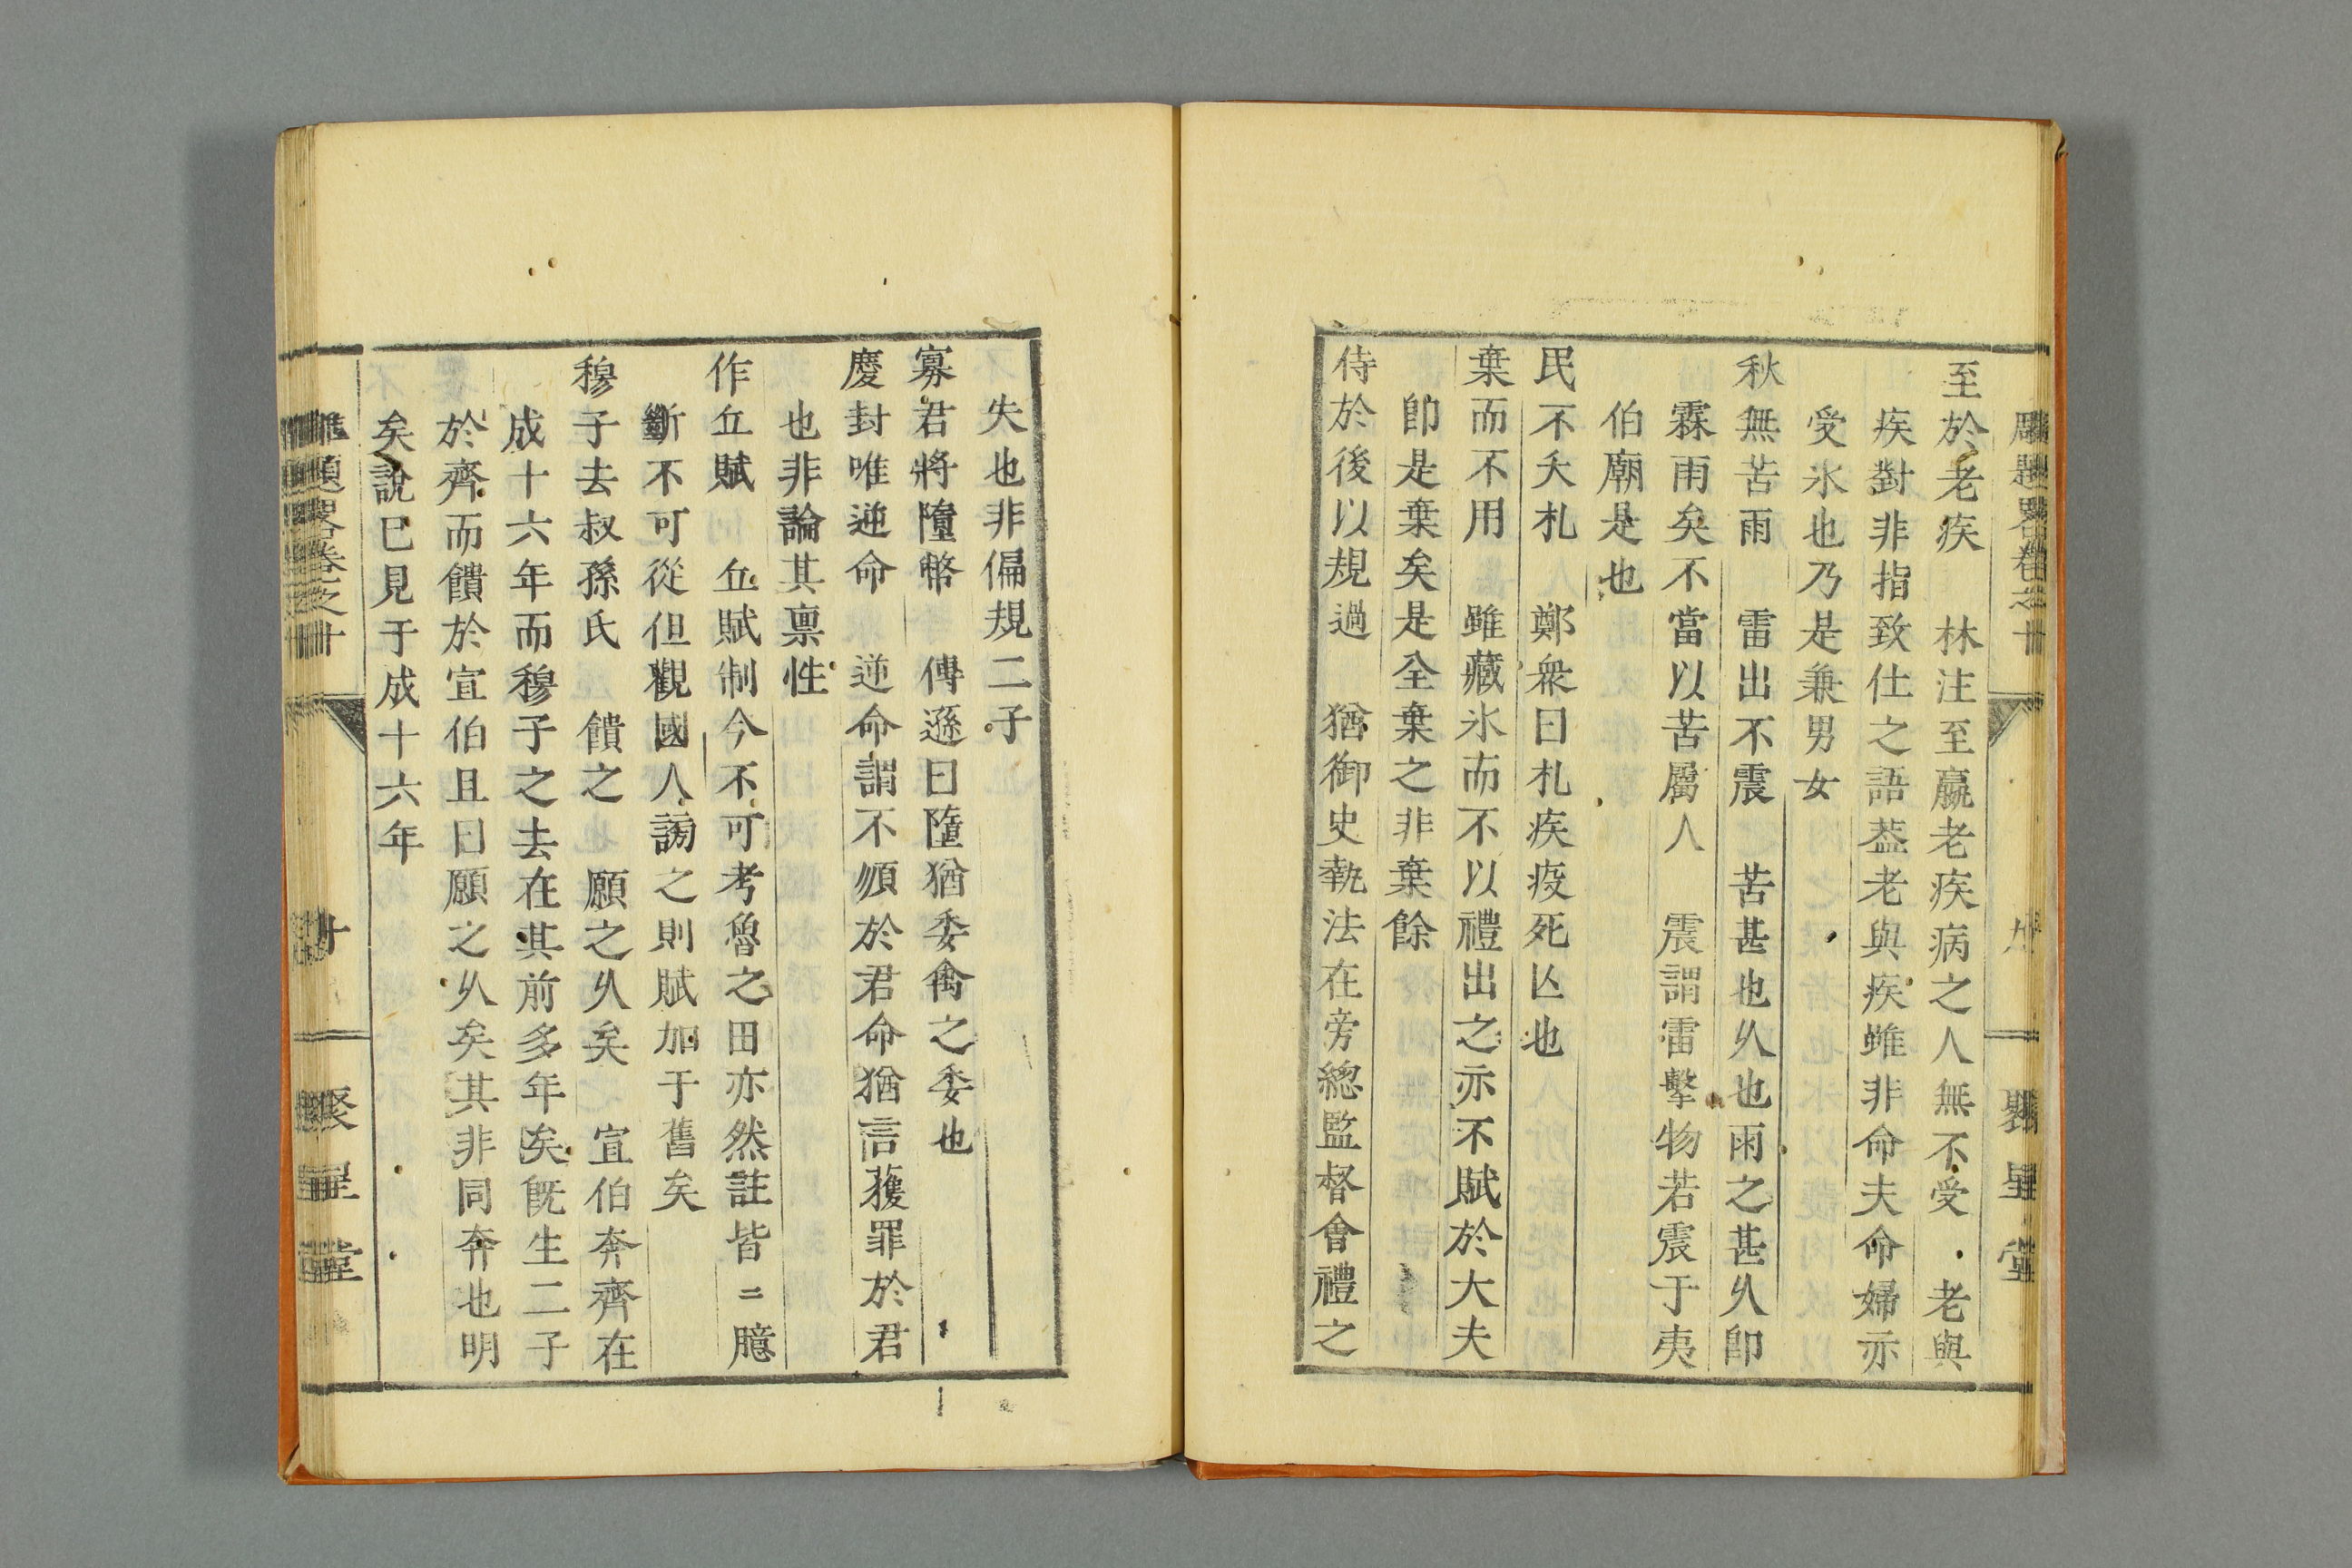 至於老疾　林注至羸老疾病之人無不受・老與
疾對非指致仕之語葢老與疾雖非命夫命婦亦
受氷也乃是兼男女
秋無苦雨　雷出不震　苦甚也乆也雨之甚乆卽
霖雨矣不當以苦屬人　震謂雷擊物若震于夷
伯廟是也
民不夭札　鄭衆曰札疾疫死亾也
棄而不用　雖藏氷而不以禮出之亦不賦於大夫
卽是棄矣是全棄之非棄餘
侍於後以規過　猶御史執法在旁總監督會禮之
九
聚星堂
失也非偏規二子
寡君將隳幣　傳遜曰隳猶委禽之委也
慶封唯逆命　逆命謂不順於君命猶言獲罪於君
也非論其禀性
作丘賦　丘賦制今不可考魯之田亦然註皆ニ臆
斷不可從但觀國人謗之則賦加于舊矣
穆子去叔孫氏　饋之　願之乆矣　宣伯奔齊在
成十六年而穆子之去在其前多年矣旣生二子
於齊而饋於宣伯且曰願之乆矣其非同奔也明
矣說已見于成十六年
卷之十
十
聚星堂